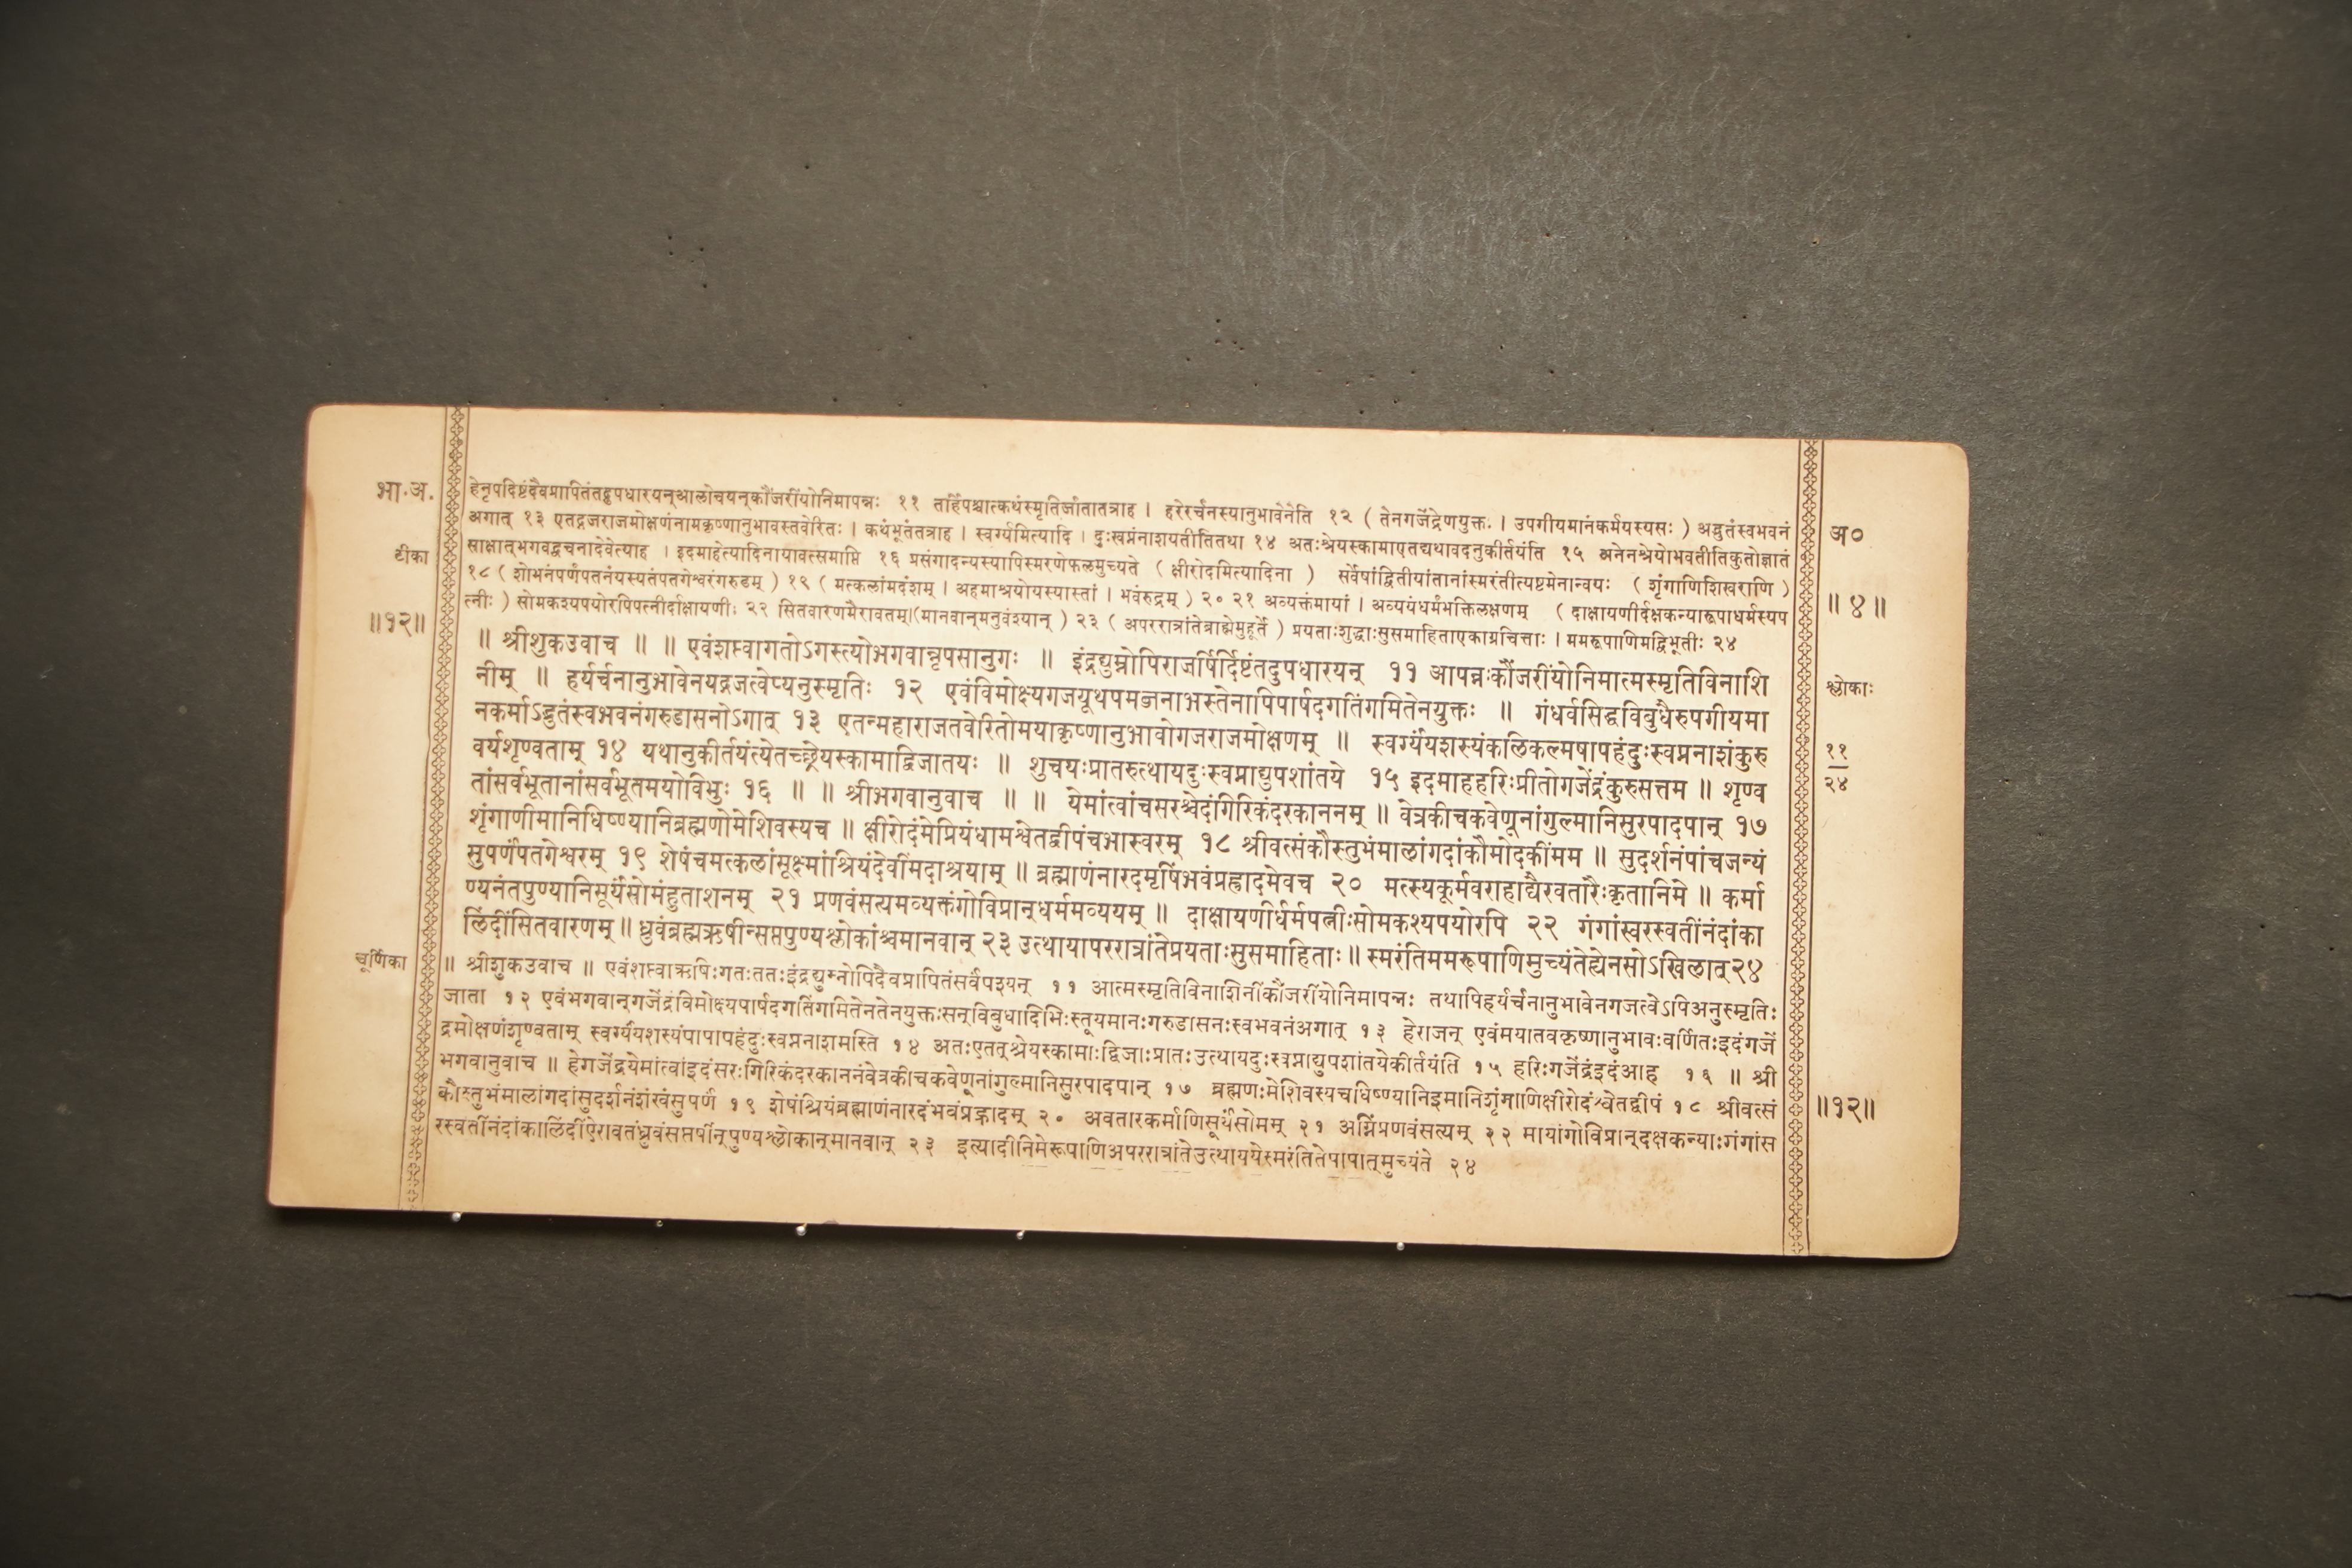 भा.अ.
टीका
॥१२॥
हेनृपदिष्टंदैवप्रापितंतदुपधारयन्आलोचयन्कौंजरींयोनिमापन्नः ११ तर्हिपश्चात्कथंस्मृतिर्जातातत्राह । हरेरर्चनस्यानुभावेनेति १२ ( तेनगजेंद्रेणयुक्तः । उपगीयमानंकर्मयस्यसः ) अद्भुतंस्वभवनं
अगात् १३ एतद्गजराजमोक्षणंनामकृष्णानुभावस्तवेरितः । कथंभूतंतत्राह । स्वर्ग्यमित्यादि । दुःस्वप्नंनाशयतीतितथा १४ अतःश्रेयस्कामाएतद्यथावदनुकीर्तयंति १५ अनेनश्रेयोभवतीतिकुतोज्ञातं
साक्षात्भगवद्वचनादेवेत्याह । इदमाहेत्यादिनायावत्समाप्ति १६ प्रसंगादन्यस्यापिस्मरणेफलमुच्यते ( क्षीरोदमित्यादिना ) सर्वेषांद्वितीयांतानांस्मरंतीत्यष्टमेनान्वयः ( शृंगाणिशिखराणि )
१८ ( शोभनंपर्णंपतनंयस्यतंपतगेश्वरंगरुडम् ) १९ ( मत्कलांमदंशम् । अहमाश्रयोयस्यास्तां । भवंरुद्रम् ) २० २१ अव्यक्तंमायां । अव्ययंधर्मंभक्तिलक्षणम् ( दाक्षायणीर्दक्षकन्यारूपाधर्मस्यप
त्नीः ) सोमकश्यपयोरपिपत्नीर्दाक्षायणीः २२ सितवारणमैरावतम्।(मानवान्मनुवंश्यान् ) २३ ( अपररात्रांतेब्राह्मेमुहूर्ते ) प्रयताःशुद्धाःसुसमाहिताएकाग्रचित्ताः । ममरूपाणिमद्विभूतीः २४
॥ श्रीशुकउवाच ॥ ॥ एवंशप्त्वागतोऽगस्त्योभगवान्नृपसानुगः ॥ इंद्रद्युम्नोपिराजर्षिर्दिष्टंतदुपधारयन् ११ आपन्नःकौंजरींयोनिमात्मस्मृतिविनाशि
नीम् ॥ हर्यर्चनानुभावेनयद्गजत्वेप्यनुस्मृतिः १२ एवंविमोक्ष्यगजयूथपमब्जनाभस्तेनापिपार्षदगतिंगमितेनयुक्तः ॥ गंधर्वसिद्धविबुधैरुपगीयमा
नकर्माऽद्भुतंस्वभवनंगरुडासनोऽगात् १३ एतन्महाराजतवेरितोमयाकृष्णानुभावोगजराजमोक्षणम् ॥ स्वर्ग्यंयशस्यंकलिकल्मषापहंदुःस्वप्ननाशंकुरु
वर्यशृण्वताम् १४ यथानुकीर्तयंत्येतच्छ्रेयस्कामाद्विजातयः ॥ शुचयःप्रातरुत्थायदुःस्वप्नाद्युपशांतये १५ इदमाहहरिःप्रीतोगजेंद्रंकुरुसत्तम ॥ शृण्व
तांसर्वभूतानांसर्वभूतमयोविभुः १६ ॥ ॥ श्रीभगवानुवाच ॥ ॥ येमांत्वांचसरश्चेदंगिरिकंदरकाननम् ॥ वेत्रकीचकवेणूनांगुल्मानिसुरपादपान् १७
शृंगाणीमानिधिष्ण्यानिब्रह्मणोमेशिवस्यच ॥ क्षीरोदंमेप्रियंधामश्वेतद्वीपंचभास्वरम् १८ श्रीवत्संकौस्तुभंमालांगदांकौमोदकींमम ॥ सुदर्शनंपांचजन्यं
सुपर्णंपतगेश्वरम् १९ शेषंचमत्कलांसूक्ष्मांश्रियंदेवींमदाश्रयाम् ॥ ब्रह्माणंनारदमृषिंभवंप्रह्रादमेवच २० मत्स्यकूर्मवराहाद्यैरवतारैःकृतानिमे ॥ कर्मा
ण्यनंतपुण्यानिसूर्यंसोमंहुताशनम् २१ प्रणवंसत्यमव्यक्तंगोविप्रान्धर्ममव्ययम् ॥ दाक्षायणीर्धर्मपत्नीःसोमकश्यपयोरपि २२ गंगांसरस्वतींनंदांका
लिंदींसितवारणम् ॥ ध्रुवंब्रह्मऋषीन्सप्तपुण्यश्लोकांश्चमानवान् २३ उत्थायापररात्रांतेप्रयताःसुसमाहिताः ॥ स्मरंतिममरूपाणिमुच्यंतेह्येनसोऽखिलात् २४
चूर्णिका
॥ श्रीशुकउवाच ॥ एवंशप्त्वाऋषिःगतःततःइंद्रद्युम्नोपिदैवप्रापितंसर्वंपश्यन् ११ आत्मस्मृतिविनाशिनींकौंजरींयोनिमापन्नः तथापिहर्यर्चनानुभावेनगजत्वेऽपिअनुस्मृतिः
जाता १२ एवंभगवान्गजेंद्रंविमोक्ष्यपार्षदगतिंगमितेनतेनयुक्तःसन्विबुधादिभिःस्तूयमानःगरुडासनःस्वभवनंअगात् १३ हेराजन् एवंमयातवकृष्णानुभावःवर्णितःइदंगजें
द्रमोक्षणंशृण्वताम् स्वर्ग्यंयशस्यंपापापहंदुःस्वप्ननाशमस्ति १४ अतःएतत्श्रेयस्कामाःद्विजाःप्रातःउत्थायदुःस्वप्नाद्युपशांतयेकीर्तयंति १५ हरिःगजेंद्रंइदंआह १६ ॥ श्री
भगवानुवाच ॥ हेगजेंद्रयेमांत्वांइदंसरःगिरिकंदरकाननंवेत्रकीचकवेणूनांगुल्मानिसुरपादपान् १७ ब्रह्मणःमेशिवस्यचधिष्ण्यानिइमानिशृंगाणिक्षीरोदंश्वेतद्वीपं १८ श्रीवत्सं
कौस्तुभंमालांगदांसुदर्शनंशंखंसुपर्णं १९ शेषंश्रियंब्रह्माणंनारदंभवंप्रह्रादम् २० अवतारकर्माणिसूर्यंसोमम् २१ अग्निंप्रणवंसत्यम् २२ मायांगोविप्रान्दक्षकन्याःगंगांस
रस्वतींनंदांकालिंदींऐरावतंध्रुवंसप्तर्षीन्पुण्यश्लोकान्मानवान् २३ इत्यादीनिमेरूपाणिअपररात्रांतेउत्थाययेस्मरंतितेपापात्मुच्यंते २४
अ०
॥ ४ ॥
श्लोकाः
११
२४
॥१२॥